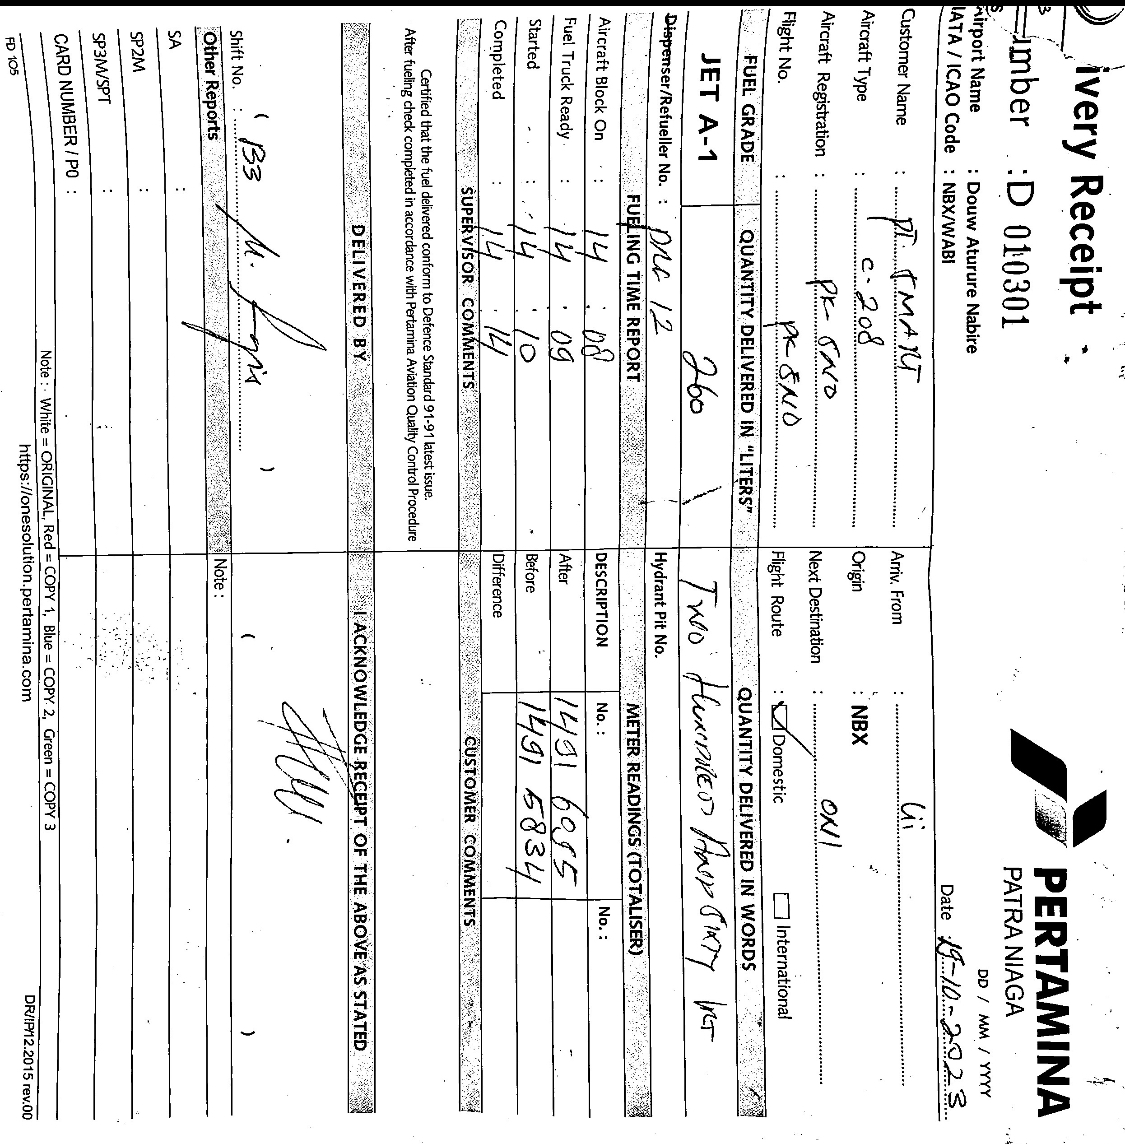 ivery Receipt
PERTAMINA
PATRA NIAGA
umber : D 010301
DD / MM / YYYY
Airport Name : Douw Aturure Nabire
Date 19-10-2023
IATA / ICAO Code : NBX/WABI
Customer Name : PT. SMART
Arriv. From :
Aircraft Type : C-208
Origin : NBX
Aircraft Registration : PK-SNO
Next Destination : ONI
Flight No. : PK SNO
Flight Route : Domestic International
FUEL GRADE QUANTITY DELIVERED IN "LITERS" QUANTITY DELIVERED IN WORDS
JET A-1 260 Two Hundred And Sixty
Dispenser/Refueller No. : 12
Hydrant Pit No.
FUELING TIME REPORT METER READINGS (TOTALISER)
Aircraft Block On : 14 : 08
DESCRIPTION No. : No. :
Fuel Truck Ready : 14 : 09
After 1491 6095
Started : 14 : 10
Before 1491 5834
Completed : 14 : 14
Difference
SUPERVISOR COMMENTS CUSTOMER COMMENTS
Certified that the fuel delivered conform to Defence Standard 91-91 latest issue.
After fueling check completed in accordance with Pertamina Aviation Quality Control Procedure
DELIVERED BY I ACKNOWLEDGE RECEIPT OF THE ABOVE AS STATED
Shift No. : ( ) ( )
Other Reports Note :
SA :
SP2M :
SP3M/SPT :
CARD NUMBER / P0 :
Note : White = ORIGINAL, Red = COPY 1, Blue = COPY 2, Green = COPY 3
https://onesolution.pertamina.com
FD 105
DR/IP/12.2015 rev.00